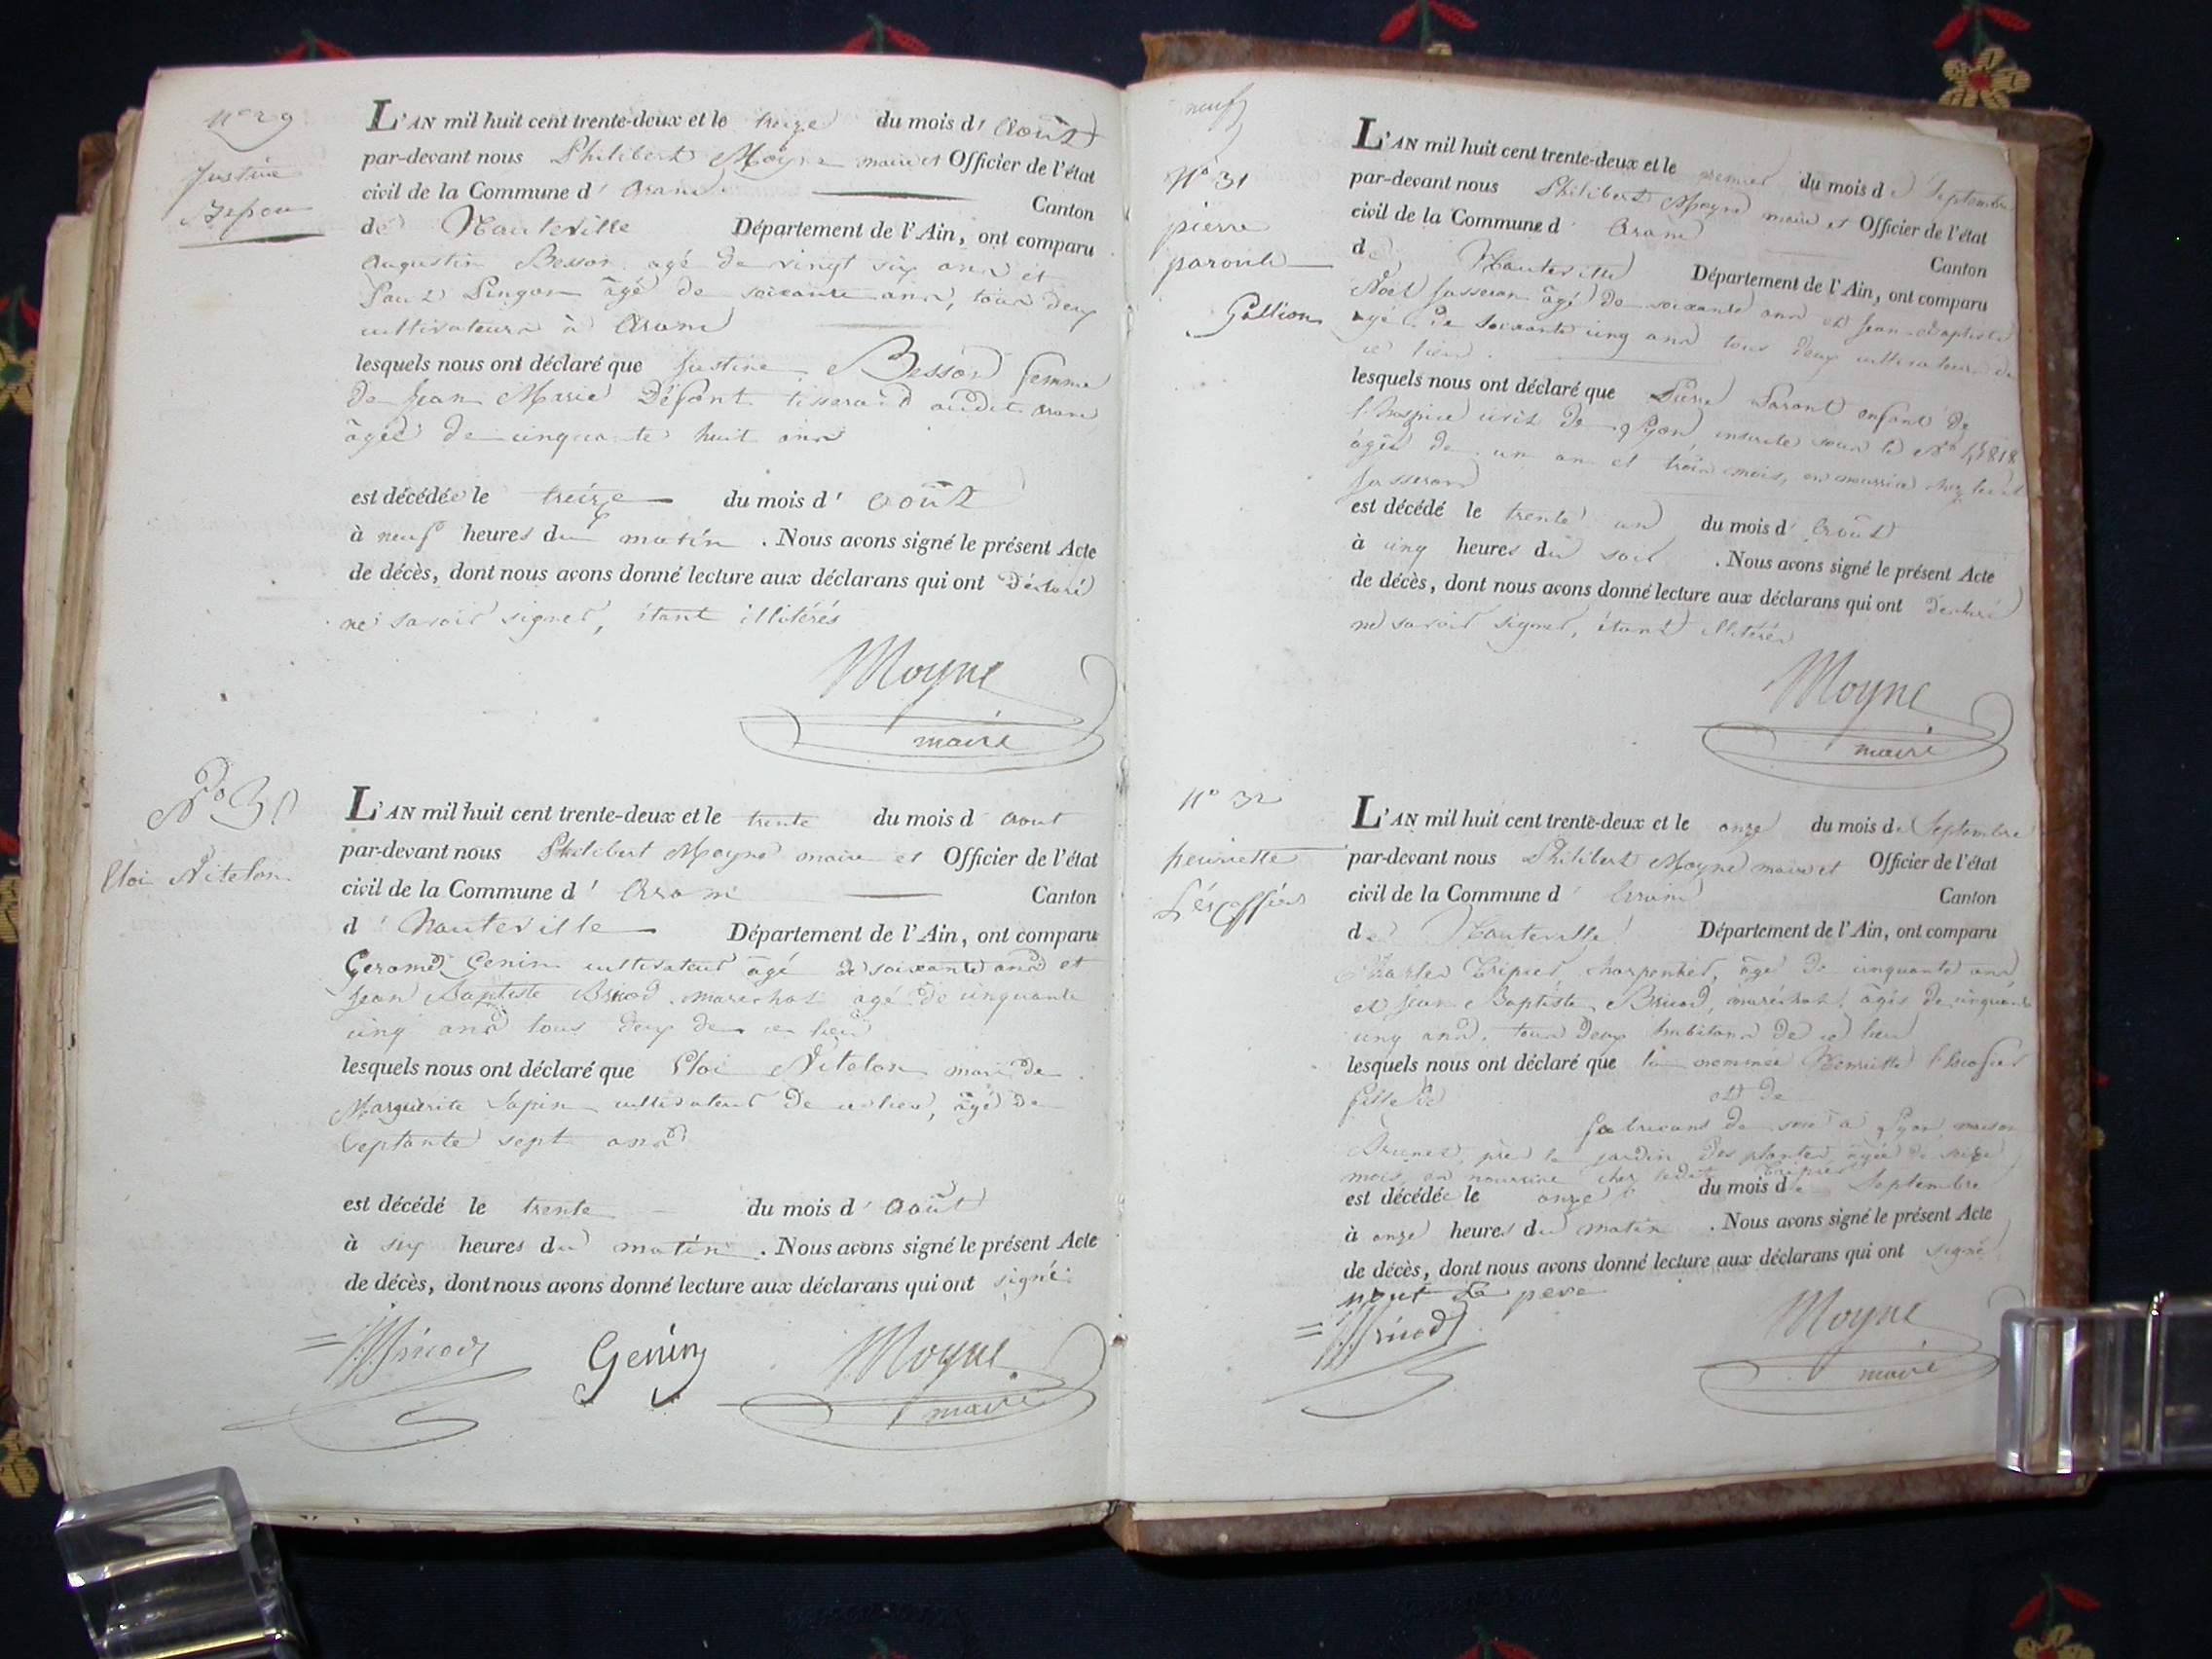 N° 29
Justine
Besson
L'AN mil huit cent trente-deux et le treize du mois d' Août
par-devant nous Philibert Moyne maire et Officier de l'état
civil de la Commune d' Aranc
Canton
de Hauteville Département de l'Ain, ont comparu
Augustin Besson agé de vingt six ans et
Pingon âgé de soixante ans, tous deux
cultivateurs à Aranc
lesquels nous ont déclaré que Justine Besson femme
de Jean Marie Défont tisserand audit Aranc
âgée de cinquante huit ans
est décédée le treize du mois d' août
à neuf heures du matin . Nous avons signé le présent Acte
de décès, dont nous avons donné lecture aux déclarans qui ont déclaré
ne savoir signer, étant illitérés
Moyne
maire
N° 30
Eloi Nitelon
L'AN mil huit cent trente-deux et le trente du mois d aout
par-devant nous Philibert Moyne maire et Officier de l'état
civil de la Commune d' Aranc
Canton
d' hauteville Département de l'Ain, ont comparu
Gerome Genin cultivateur âgé de soixante ans et
Jean Baptiste Bricod marechal agé de cinquante
cinq ans tous deux de ce lieu
lesquels nous ont déclaré que Eloi Nitelon mari de
Marguerite Sapin cultivateur de ce lieu, âgé de
septante sept ans
est décédé le trente du mois d' Août
à six heures du matin . Nous avons signé le présent Acte
de décès, dont nous avons donné lecture aux déclarans qui ont signé
Bricod Genin Moyne
maire
neuf
N° 31
pierre
Gallion
L'AN mil huit cent trente-deux et le premier du mois de Septembre
par-devant nous Philibert Moyne maire et Officier de l'état
civil de la Commune d' Aranc
Canton
de Hauteville Département de l'Ain, ont comparu
Noël Jasseran âgé de soixante ans et Jean-Baptiste
agé de soixante cinq ans tous deux cultivateurs de
ce lieu
lesquels nous ont déclaré que Pierre enfant de
l'hospice civil de Lyon, inscrite sous le N°
âgée de un an et trois mois, en nourrice chez ledit
Jasseran
est décédé le trente un du mois d' Août
à cinq heures du soir . Nous avons signé le présent Acte
de décès, dont nous avons donné lecture aux déclarans qui ont déclaré
ne savoir signer, étant illitérés
Moyne
maire
N° 32
henriette
L'éscoffier
L'AN mil huit cent trente-deux et le onze du mois de Septembre
par-devant nous Philibert Moyne maire et Officier de l'état
civil de la Commune d' Aranc
Canton
de Hauteville Département de l'Ain, ont comparu
Charles Tripier, charpentier, âgé de cinquante ans
et Jean Baptiste Bricod, maréchal, âgés de cinquante
cinq ans, tous deux habitans de ce lieu
lesquels nous ont déclaré que la nommée Henriette
fille de et de
fabricans de soie à Lyon, maison
Brunet, près le jardin des plantes, âgée de seize
mois, en nourrice chez ledit Tripier
est décédée le onze du mois de Septembre
à onze heures du matin . Nous avons signé le présent Acte
de décès, dont nous avons donné lecture aux déclarans qui ont signé
Bricod Moyne
maire